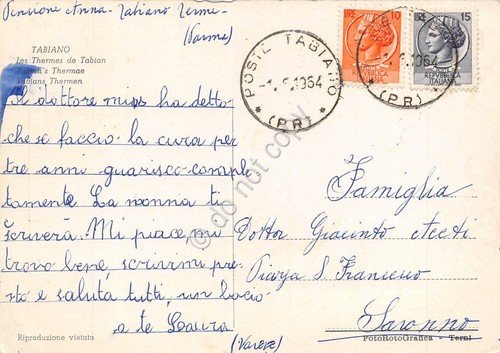 Pensione Anna - Tabiano Terme -
(Parma)
TABIANO
Les Thermes de Tabian
Tabian's Thermae
Tabians Thermen
Il dottore mi ha detto
che se faccio la cura per
tre anni guarisco comple
tamente La nonna ti
scriverà. Mi piace mi
trovo bene, scrivimi pre
sto e saluta tutti, un bacio
a te Laura
Riproduzione vietata
POSTE TABIANO
1964
* (PR) *
10
15
REPUBBLICA
ITALIANA
1964
(PR) *
Famiglia
Dottor Giacinto
Piazza S. Francesco
Saronno
(Varese)
FotoRotoGrafica - Terni
do not copy